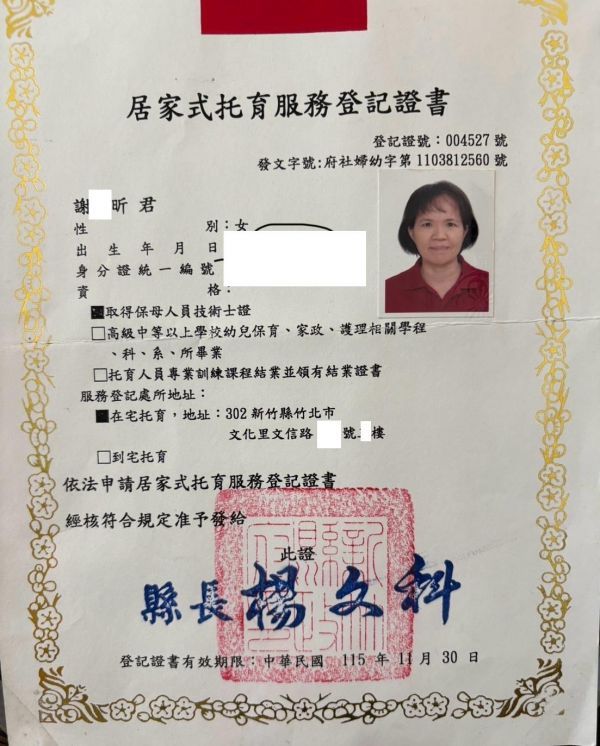 居家式托育服務登記證書
登記證號：004527 號
發文字號:府社婦幼字第 1103812560 號
謝 昕君
性 別：女
出生年月日
身分證統一編號
資 格：
■取得保母人員技術士證
□高級中等以上學校幼兒保育、家政、護理相關學程
、科、系、所畢業
□托育人員專業訓練課程結業並領有結業證書
服務登記處所地址：
■在宅托育，地址：302 新竹縣竹北市
文化里文信路 號 樓
□到宅托育
依法申請居家式托育服務登記證書
經核符合規定准予發給
此證
縣長 楊文科
登記證書有效期限：中華民國 115 年 11 月 30 日